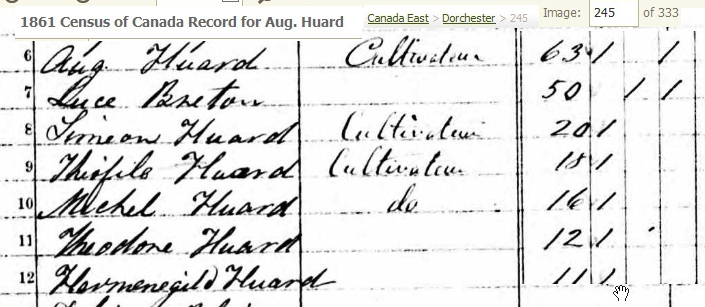 1861 Census of Canada Record for Aug. Huard
Canada East > Dorchester > 245
Image: 245 of 333
6 Aug Huard Cultivateur 63 1 1
7 Luce Breton 50 1 1
8 Simeon Huard Cultivateur 20 1
9 Thiofile Huard Cultivateur 18 1
10 Michel Huard do 16 1
11 Theodore Huard 12 1
12 Hermenegild Huard 11 1